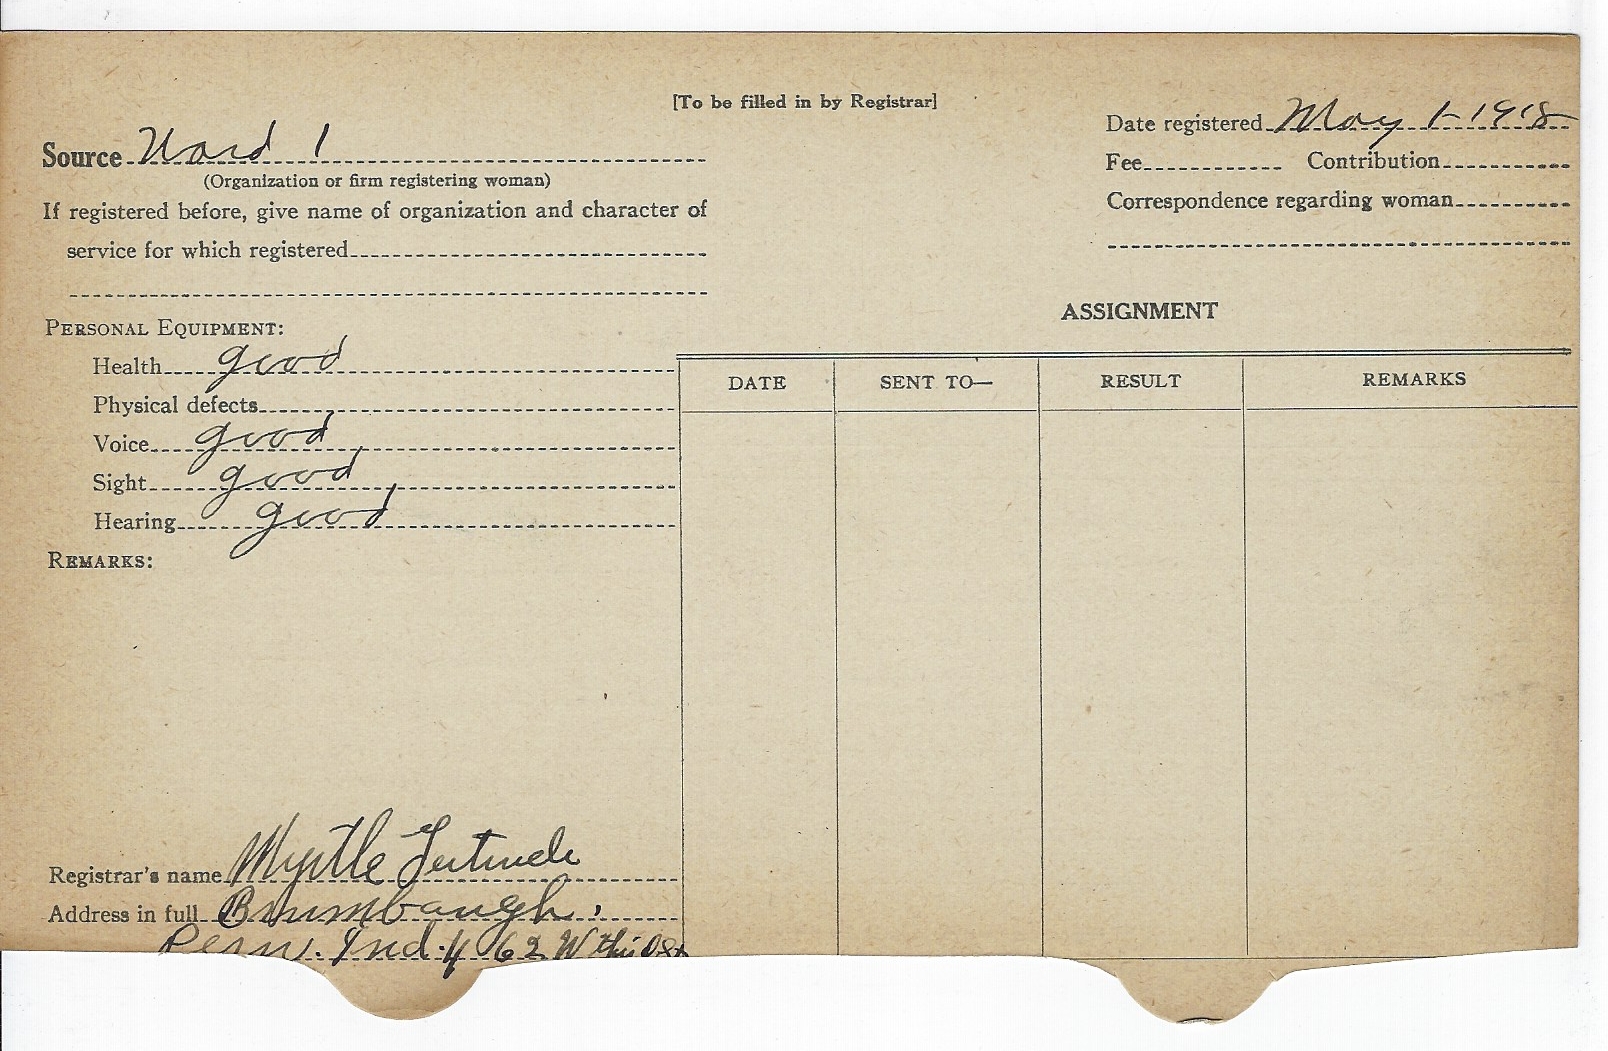 [To be filled in by Registrar]
Source Ward 1
(Organization or firm registering woman)
If registered before, give name of organization and character of
service for which registered
Date registered May 1-1918
Fee Contribution
Correspondence regarding woman
PERSONAL EQUIPMENT:
Health good
Physical defects
Voice good
Sight good
Hearing good
REMARKS:
Registrar's name Myrtle Gertrude
Address in full Brumbaugh,
Peru. Ind. 462 W third St
ASSIGNMENT
DATE SENT TO— RESULT REMARKS